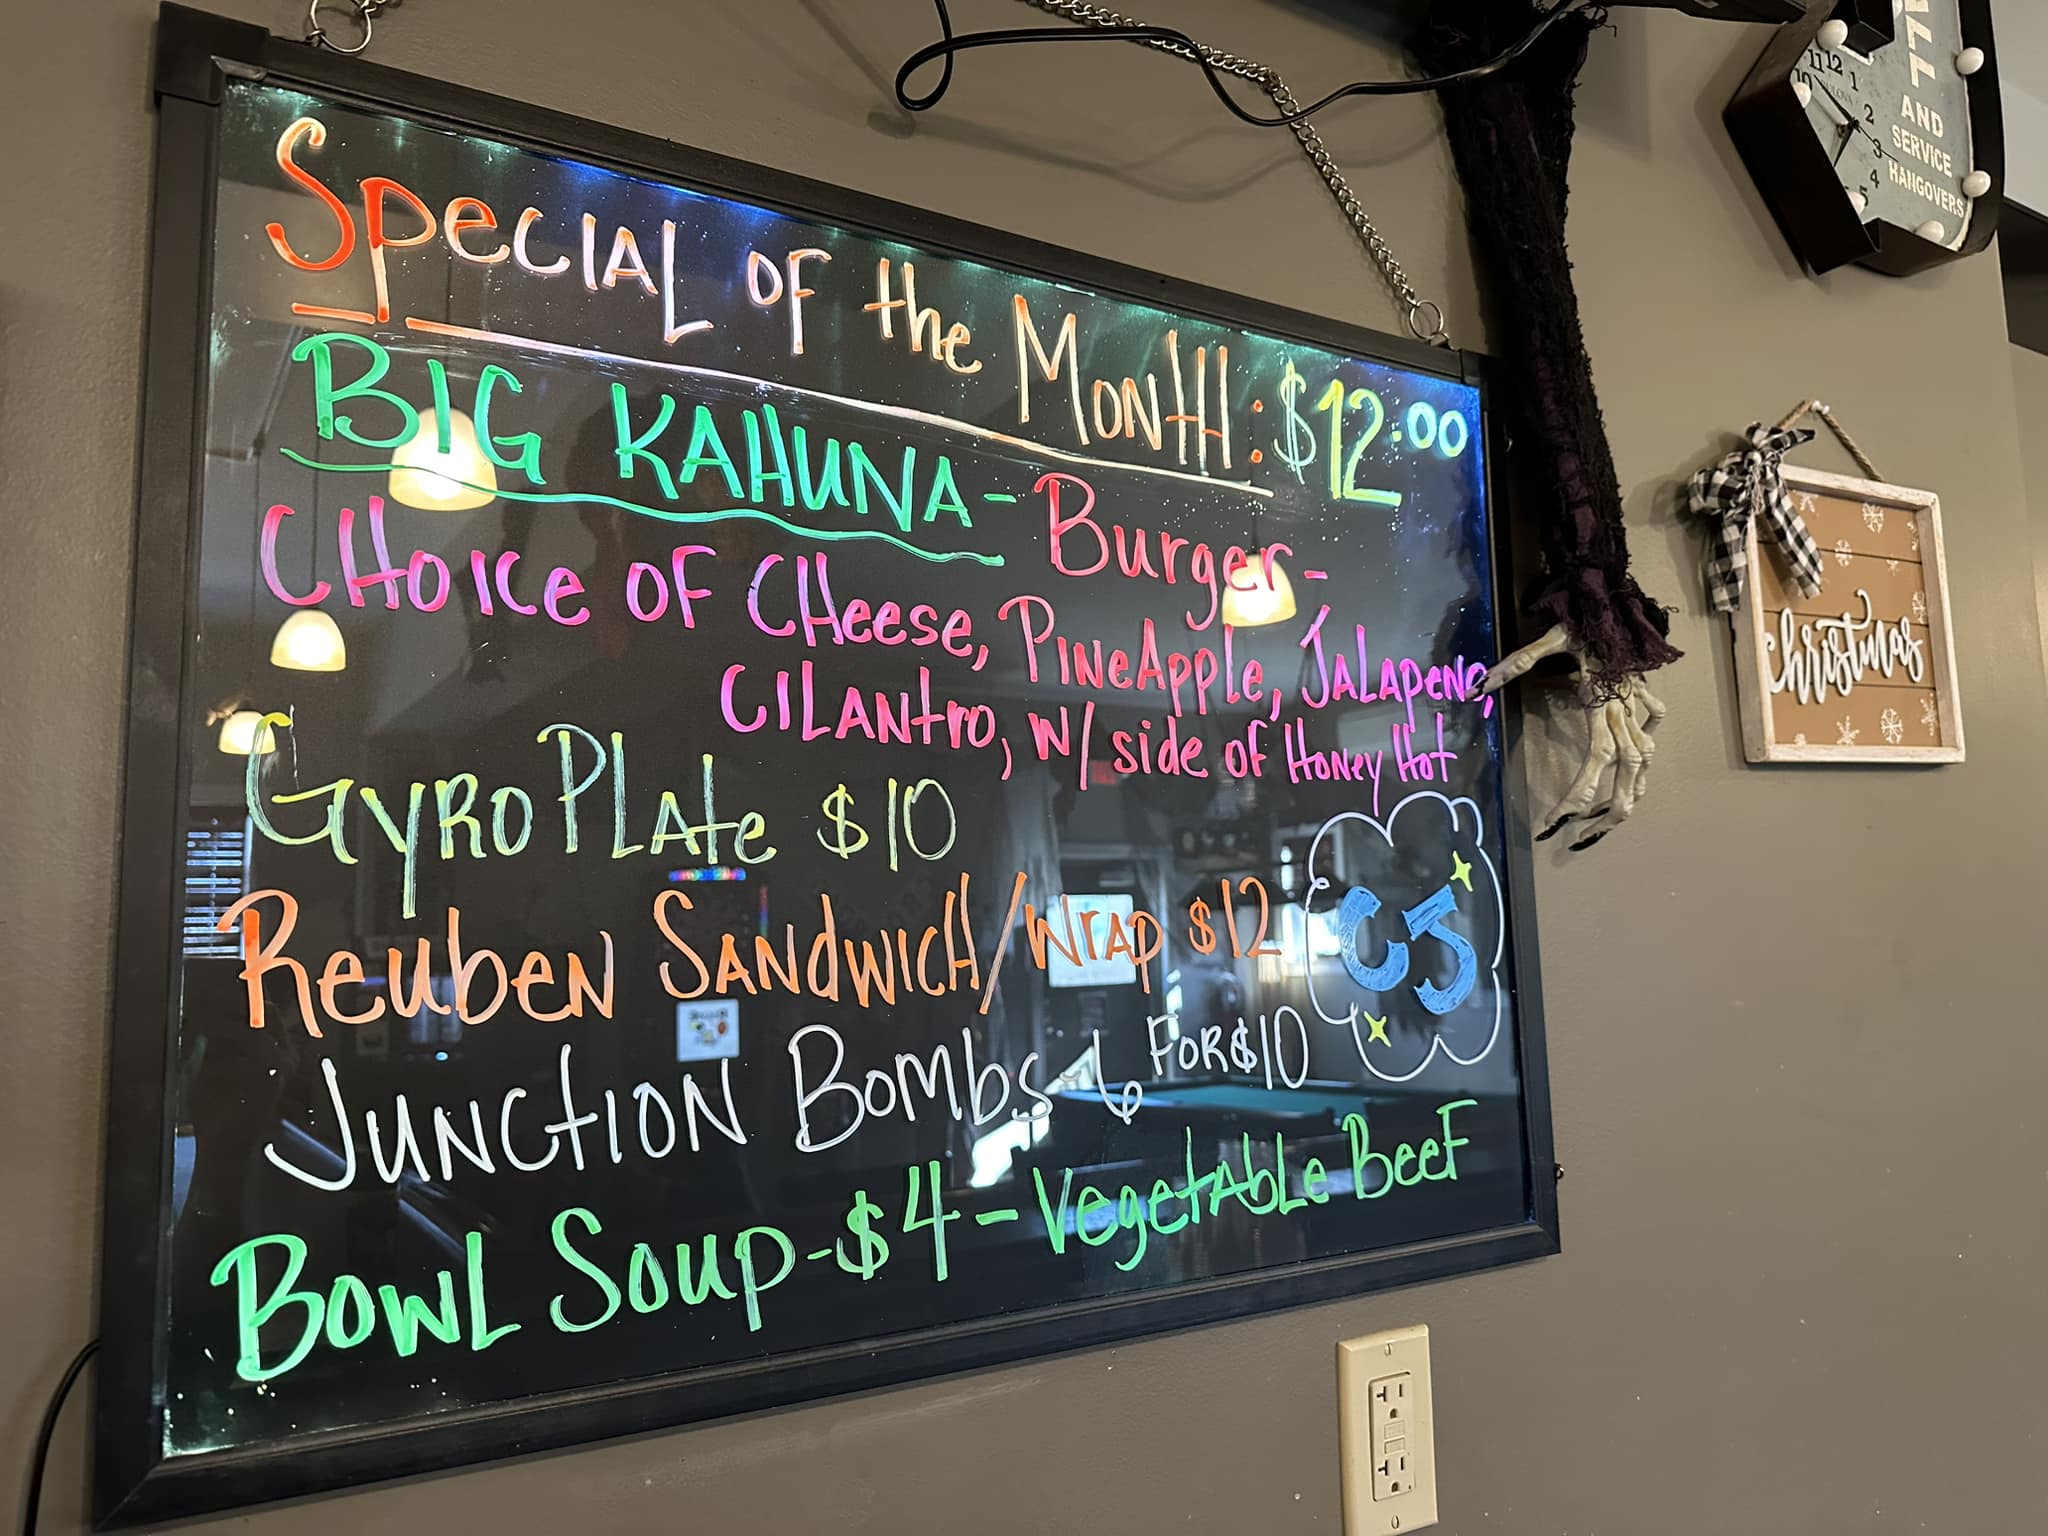 Special of the Month: $12.00
Big Kahuna - Burger -
Choice of Cheese, Pineapple, Jalapeno,
Cilantro, w/ side of Honey Hot
Gyro Plate $10
Reuben Sandwich/Wrap $12
Junction Bombs - 6 For $10
Bowl Soup - $4 - Vegetable Beef
CJ
11 12 1
10 2
3
4
5
BULOVA
AND
SERVICE
HANGOVERS
christmas
20
20